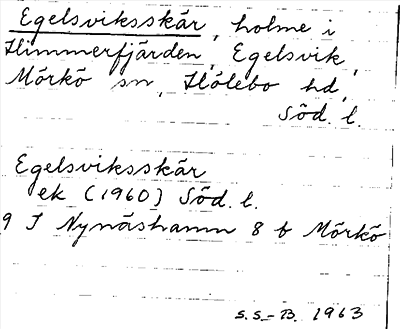 Egelsviksskär, holme i
Himmerfjärden, Egelsvik,
Mörkö sn, Hölebo hd,
Söd. l.
Egelsviksskär
ek (1960) Söd. l.
9 I Nynäshamn 8 b Mörkö
S.S.-B. 1963